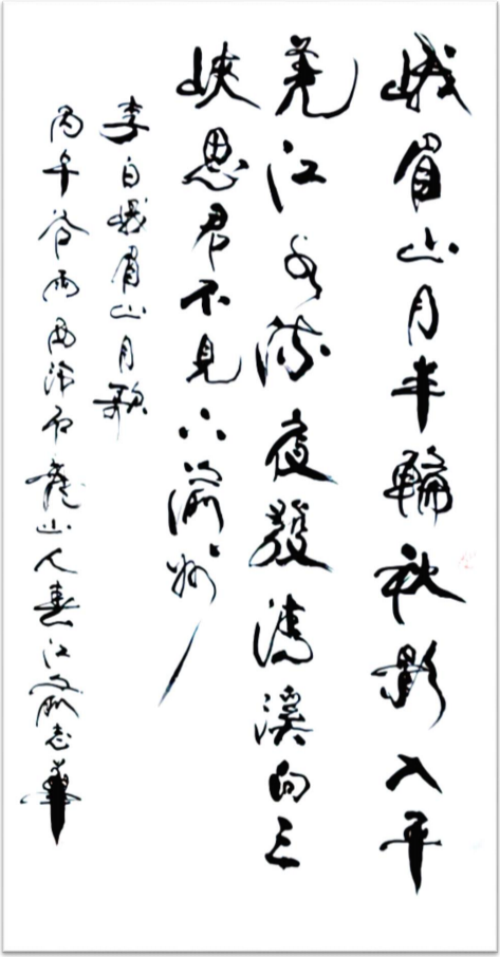 峨眉山月半輪秋影入平
羌江水流夜發清溪向三
峽思君不見下渝州
李白峨眉山月歌
丙午谷雨山人書江志